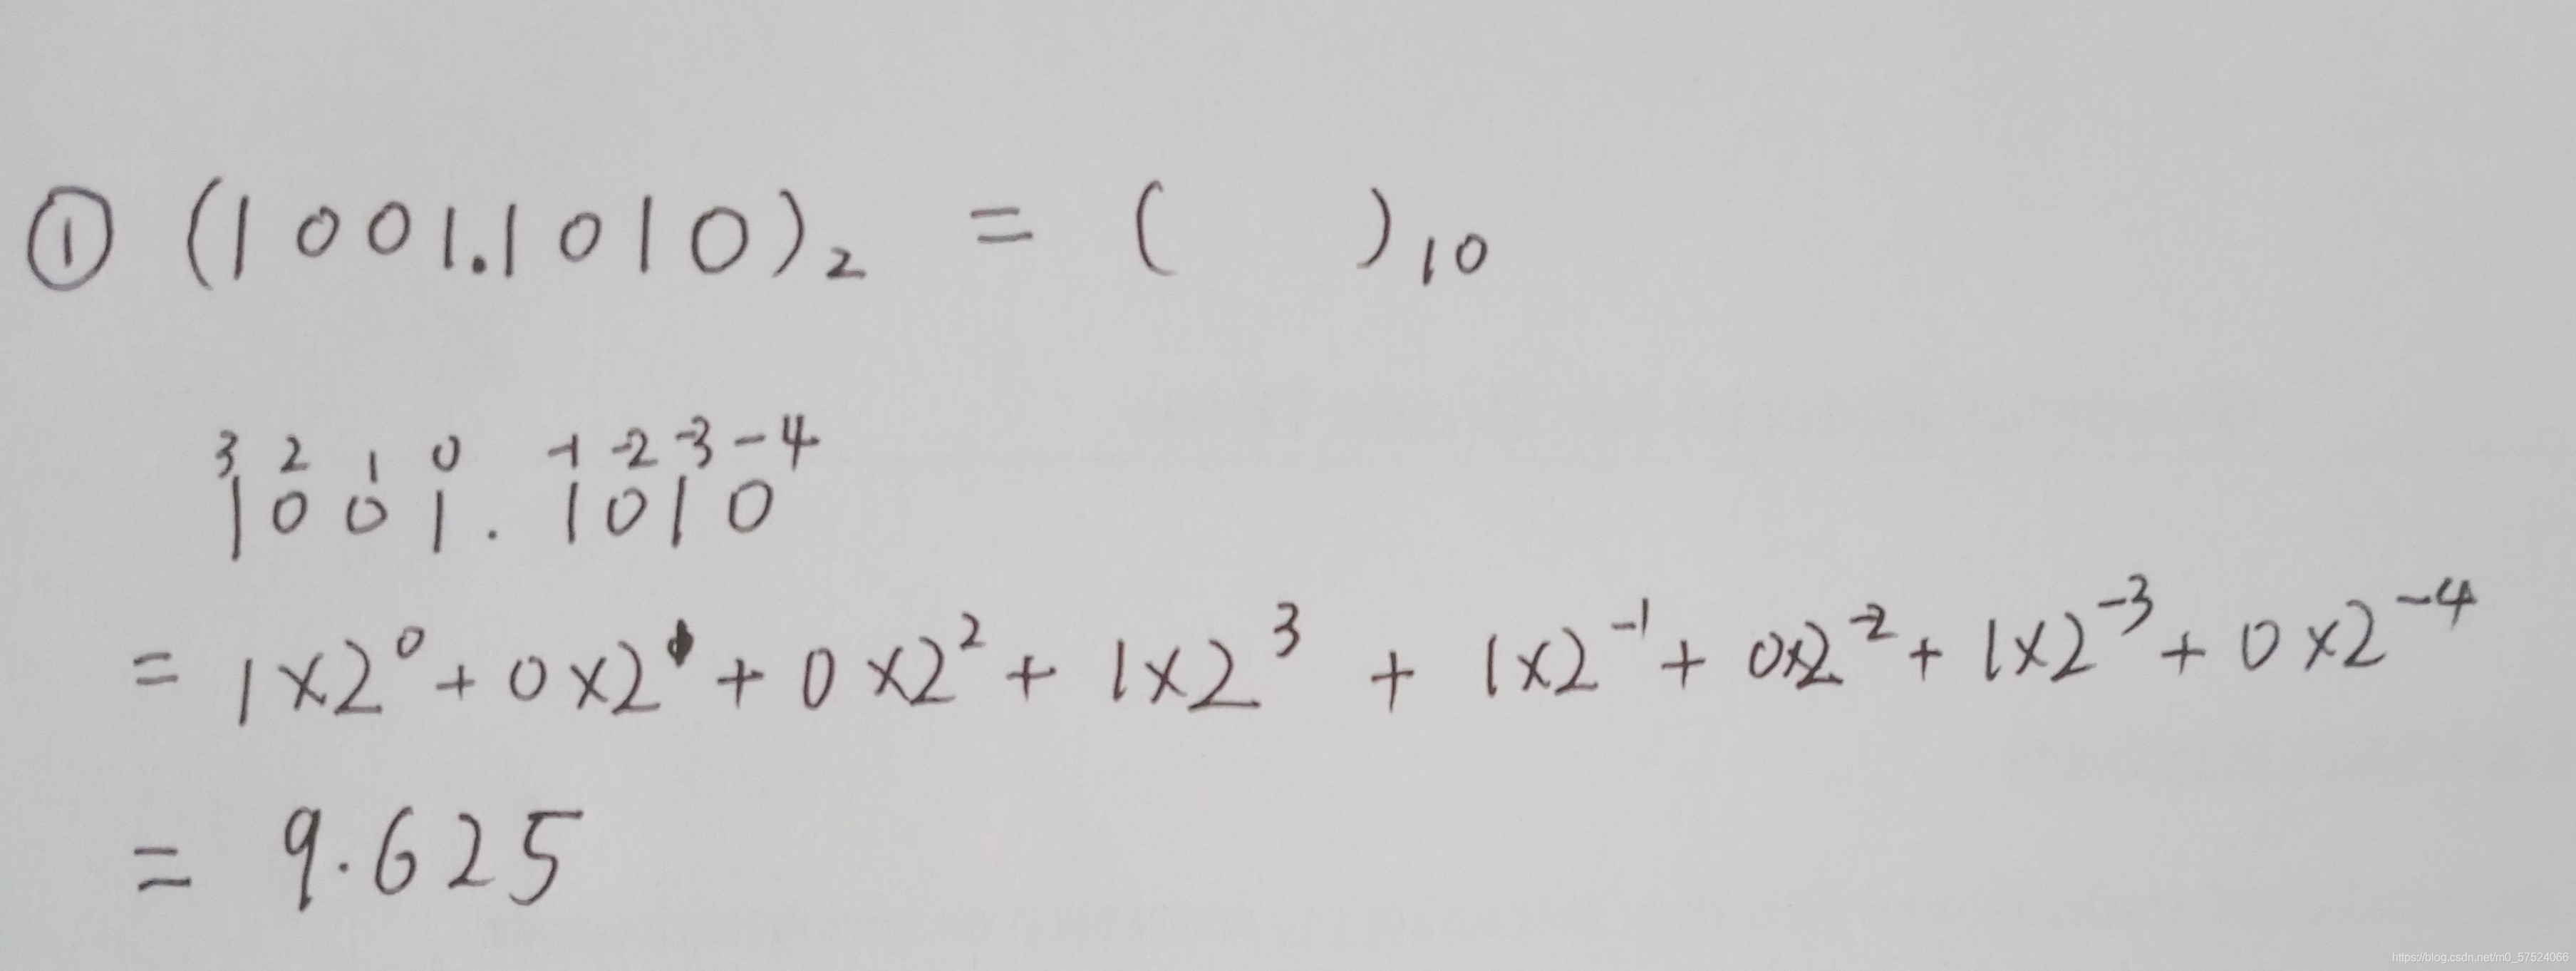 ① (1001.1010)₂ = (    )₁₀
3 2 1 0 -1 -2 -3 -4
1 0 0 1 . 1 0 1 0
= 1×2⁰ + 0×2¹ + 0×2² + 1×2³ + 1×2⁻¹ + 0×2⁻² + 1×2⁻³ + 0×2⁻⁴
= 9.625
https://blog.csdn.net/m0_57524066